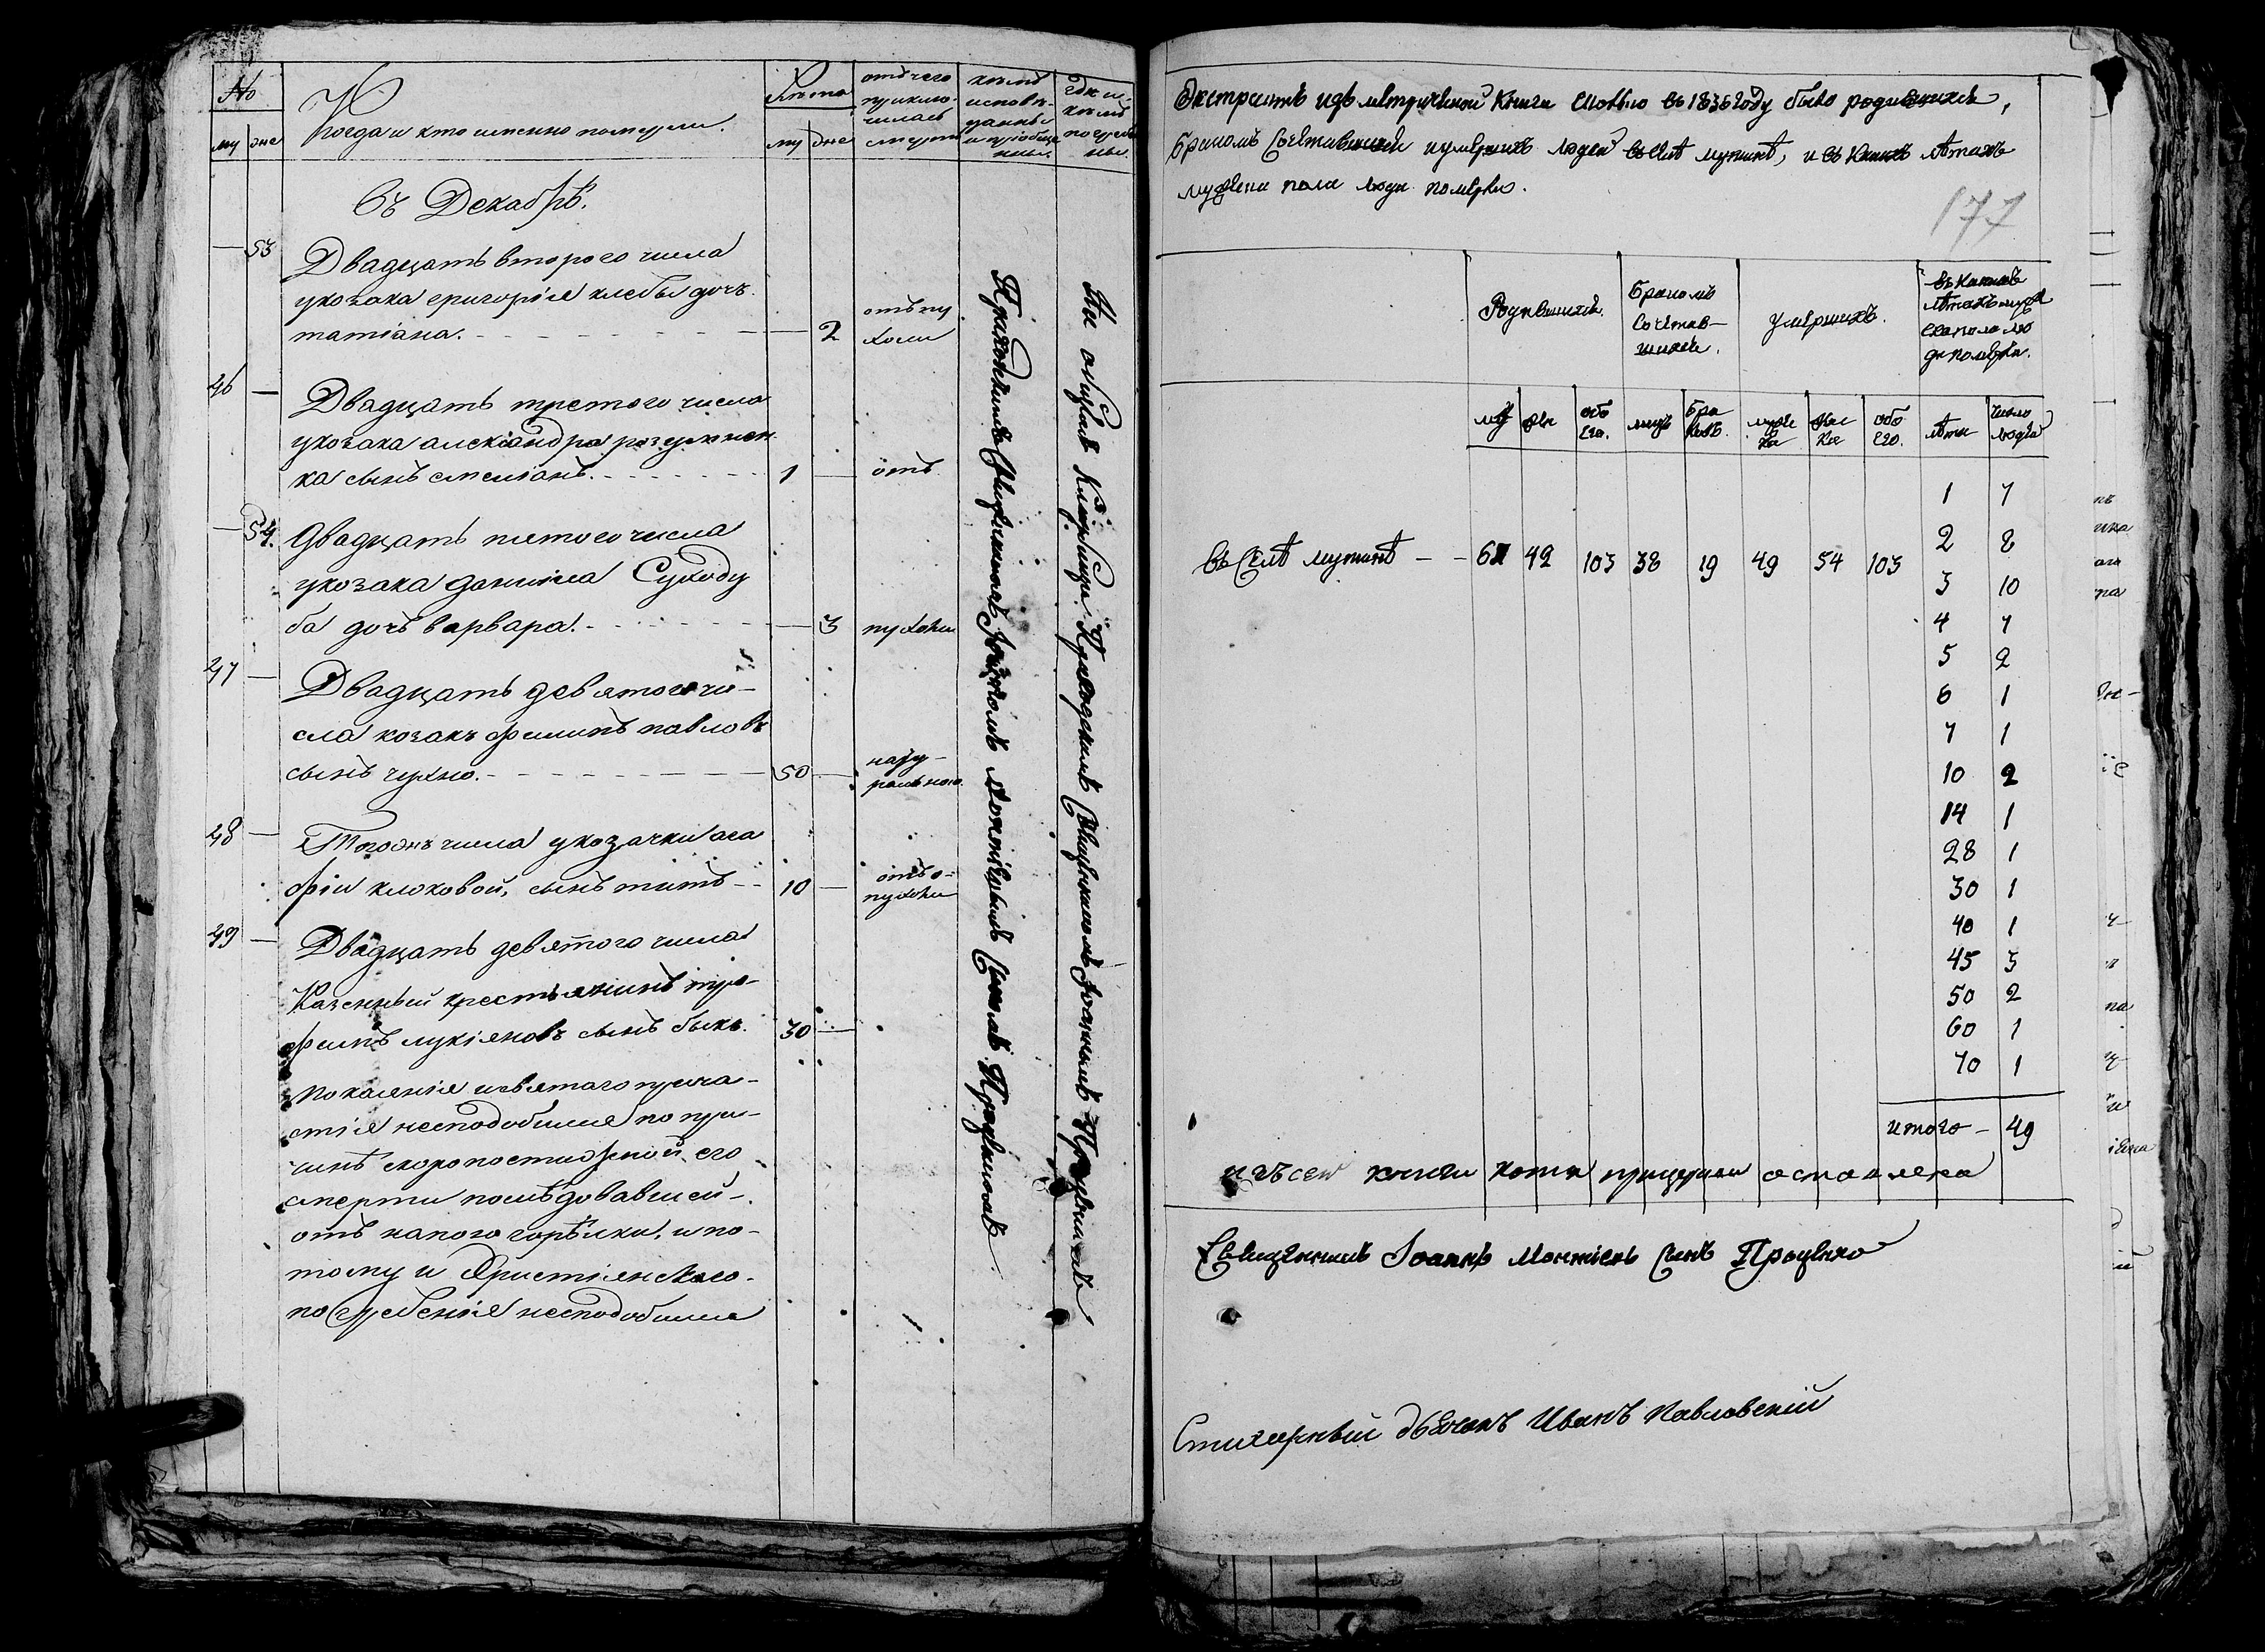 №
му
жс
Когда и кто именно померли.
Лѣта
му
жс
отъ чего
приклю-
чилась
смерть
кѣмъ
исповѣ-
даны
и приобще
ны.
Где и
кѣмъ
погребе
ны.
Въ Декабрѣ.
53
Двадцать второго числа
у козака григорія хлебы дочь
татіана.
2
отъ пу
холи
46
Двадцать третого числа
у козака алексіандра розумнен
ка сынъ стеліанъ.
1
отъ
54.
Двадцать пятого числа
у козака даниіла Суходу
ба дочъ варвара.
3
пухоли
47
Двадцать девятого чи-
сла козакъ филипъ павловъ
сынъ чухно.
50
нату-
ральною
48
Тогожъ числа у козачки ага
фіи клоковой, сынъ титъ
10
отъ о-
пухоли
49
Двадцать девятого числа
Казенный крестьянинъ тро-
филъ лукіяновъ сынъ быкъ.
30
покаянія и святаго прича-
стія несподобился по при-
чинѣ скоропостижной его
смерти последовавшей
отъ напою горѣлки, и по-
тому и Христіянского
погребенія несподобился
Приходскимъ Священникомъ Іоанномъ Мокіевымъ Сыномъ Процѣнкомъ
На общемъ Кладбищѣ Приходскимъ Священникомъ Іоанномъ Процѣнкомъ
Экстрактъ изъ метричѣской Книги сколько въ 1836 году было родившихся,
Бракомъ Сочѣтавшихся и умѣршихъ людей въ селѣ мутинѣ, и въ Какихъ лѣтахъ
мужеска пола люди померли.
177
Родившихся.
Бракомъ
Сочѣтав-
шихся.
умѣршихъ.
въ Какихъ
лѣтахъ муж
еска пола лю
ди помѣрли.
му жен обо его. лицъ Бра ковъ. муже ка жес ка обо его. лѣта Число людей
1 7
2 8
въ Селѣ мутинѣ - - 61 42 103 38 19 49 54 103
3 10
4 7
5 2
6 1
7 1
10 2
14 1
28 1
30 1
40 1
45 3
50 2
60 1
70 1
итого - 49
и съ сей книги копія при церкви оставлена
Священникъ Іоаннъ Мокіевъ Сынъ Процѣнко
Стихарный дьячокъ Иванъ Павловскій